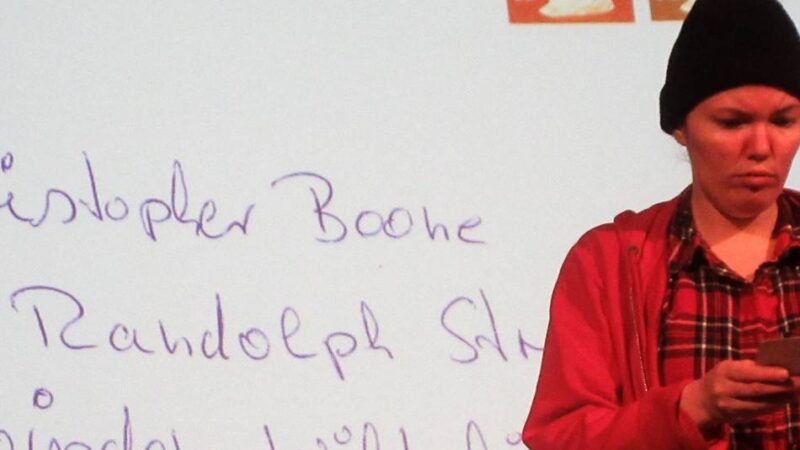 istopher Boone
Randolph Str